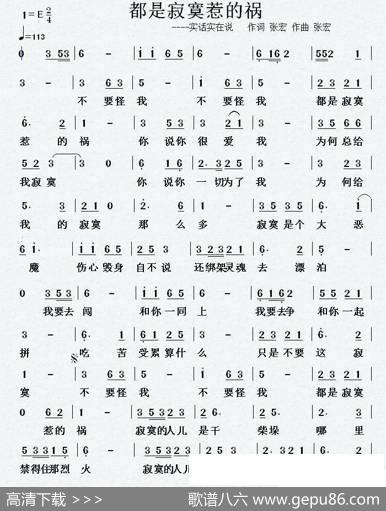 都是寂寞惹的祸
1=E 2/4
♩=113
----实话实在说 作词 张宏 作曲 张宏
0 3 53 | 6 - | i i 6 5 | 5 - | 6 i6 2 | 5 5 2 1
3 - | 3 6 3 | 5 - | 3 6 3 | 1 - | 3 2 1
不 要怪 我 不 要怪 我 都是 寂寞
6. 2 | 1 - | 3 5 | 3 2 1 | 3 - | 3 5 6 6
惹 的 祸 你 说你 很 爱 我 为何 总给
5 2 3 | 3 0 | 6 i6 | 2. 3 2 5 | 3 - | 3 6 3
我寂 寞 你 说你 一 切为了 我 为 何给
5. 3 | 2 1 0 | 2. 6 | 1 5 | 3 5 3 5 | 6. i
我 的 寂寞 那 么 多 寂寞 是个 大 恶
6 i. | i i 6 5 | 5 3 5 | 3 2 3 2 1 | 6 5. | 6 5.
魔 伤心 毁身 自不 说 还绑架灵魂 去 漂泊
0 3 5 3 | 6 - | i i 6 5 | 3 - | 6 i 6 2 | 5 5 2 1
我要去 闯 和你 一同 上 我要去争 和你 一起
3 - | 6. 1 | 2 1 6 1 | 2 - | 3 5 3 5 | 6. i
拼 吃 苦 受累 算什 么 只是 不要 这 寂
1 - | 3 6 3 | 5 - | 3 6 3 | 1 - | 3 2 1
寞 不 要怪 我 不 要怪 我 都是 寂寞
0 6 2 | 1 - | 3 5 3 2 3 | 1 3 | 2 5. | 2. 3
惹的 祸 寂寞的人儿 是干 柴垛 哪 里
5 3 3 1 5 | 1 - | 3 5 3 2 3
禁得住那烈 火 寂寞的人儿
高清下载 >>> 歌谱八六 www.gepu86.com